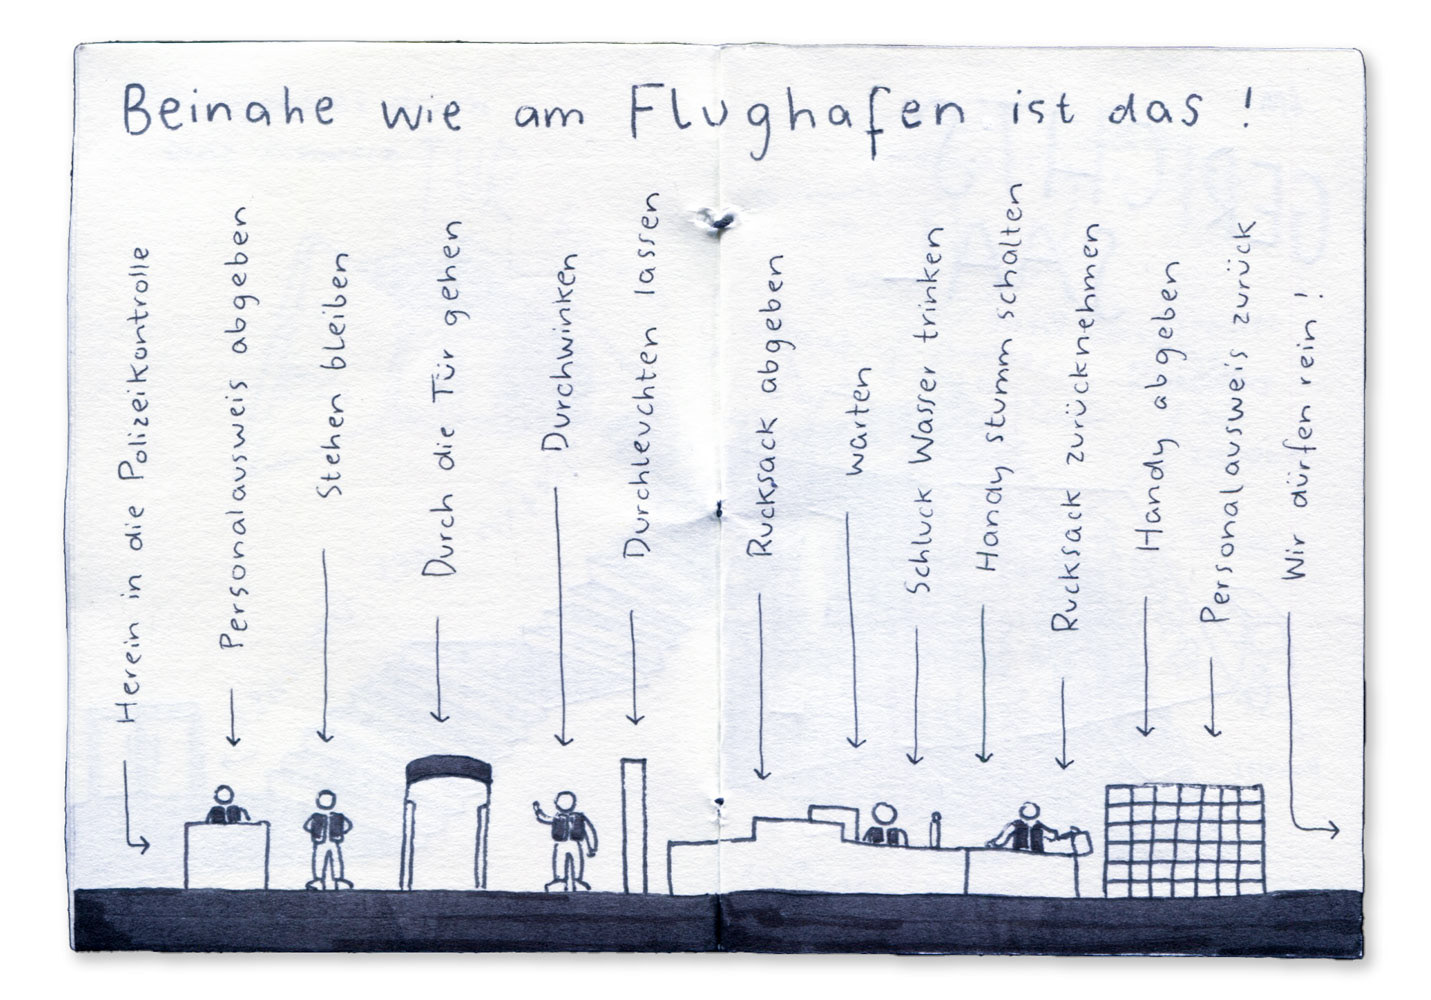 Beinahe wie am Flughafen ist das !
Herein in die Polizeikontrolle
Personalausweis abgeben
Stehen bleiben
Durch die Tür gehen
Durchwinken
Durchleuchten lassen
Rucksack abgeben
warten
Schluck Wasser trinken
Handy stumm schalten
Rucksack zurücknehmen
Handy abgeben
Personalausweis zurück
Wir dürfen rein !